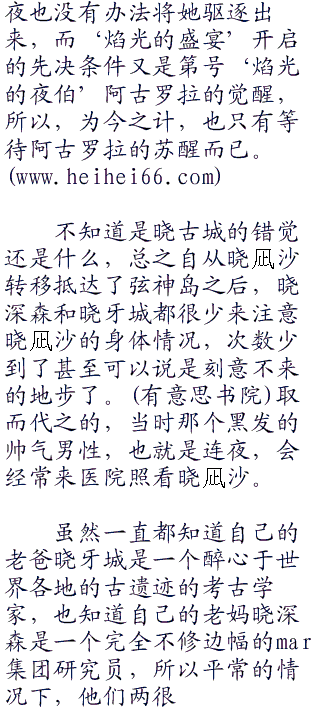 夜也没有办法将她驱逐出
来，而‘焰光的盛宴’开启
的先决条件又是第号‘焰光
的夜伯’阿古罗拉的觉醒，
所以，为今之计，也只有等
待阿古罗拉的苏醒而已。
(www.heihei66.com)
不知道是晓古城的错觉
还是什么，总之自从晓凪沙
转移抵达了弦神岛之后，晓
深森和晓牙城都很少来注意
晓凪沙的身体情况，次数少
到了甚至可以说是刻意不来
的地步了。(有意思书院)取
而代之的，当时那个黑发的
帅气男性，也就是连夜，会
经常来医院照看晓凪沙。
虽然一直都知道自己的
老爸晓牙城是一个醉心于世
界各地的古遗迹的考古学
家，也知道自己的老妈晓深
森是一个完全不修边幅的mar
集团研究员，所以平常的情
况下，他们两很